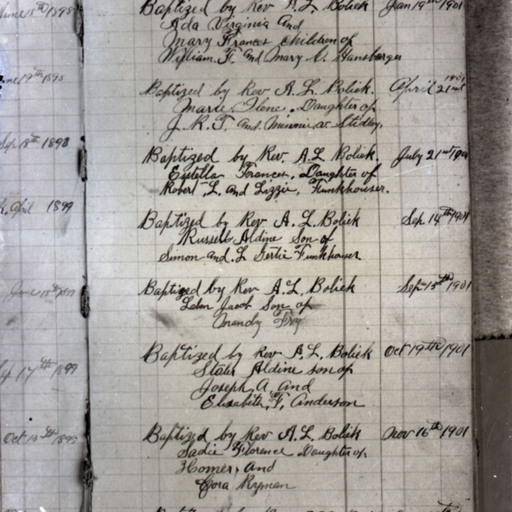 June 18th 1898
Baptized by Rev A. L. Bolick Jan 19th 1901
Ada Virginia And
Mary Frances children of
William F. And Mary C. Hansberger
June 19th 1898
Baptized by Rev A. L. Bolick. April 21st 1901
Marie Ilene. Daughter of
J. R. T. And. Minnie
Sep 18th 1898
Baptized by Rev. A. L Bolick. July 21st 1901
Estella Frances, Daughter of
Robert L. And Lizzie, Funkhouser.
April 1899
Baptized by Rev A. L Bolick Sep 14th 1901
Russell Aldine Son of
Simon and. L Gertie Funkhouser
1899
Baptized by Rev A. L, Bolick Sep 15th 1901
Jacob Son of
Mandy Fry
17th 1899
Baptized by Rev A. L. Bolick Oct 19th 1901
Aldine son of
Joseph, A. And
Elizabeth, F. Anderson
Oct 1899
Baptized by Rev A. L. Bolick Nov 16th 1901
Sadie Florence Daughter of
Homer, And
Cora Ryman